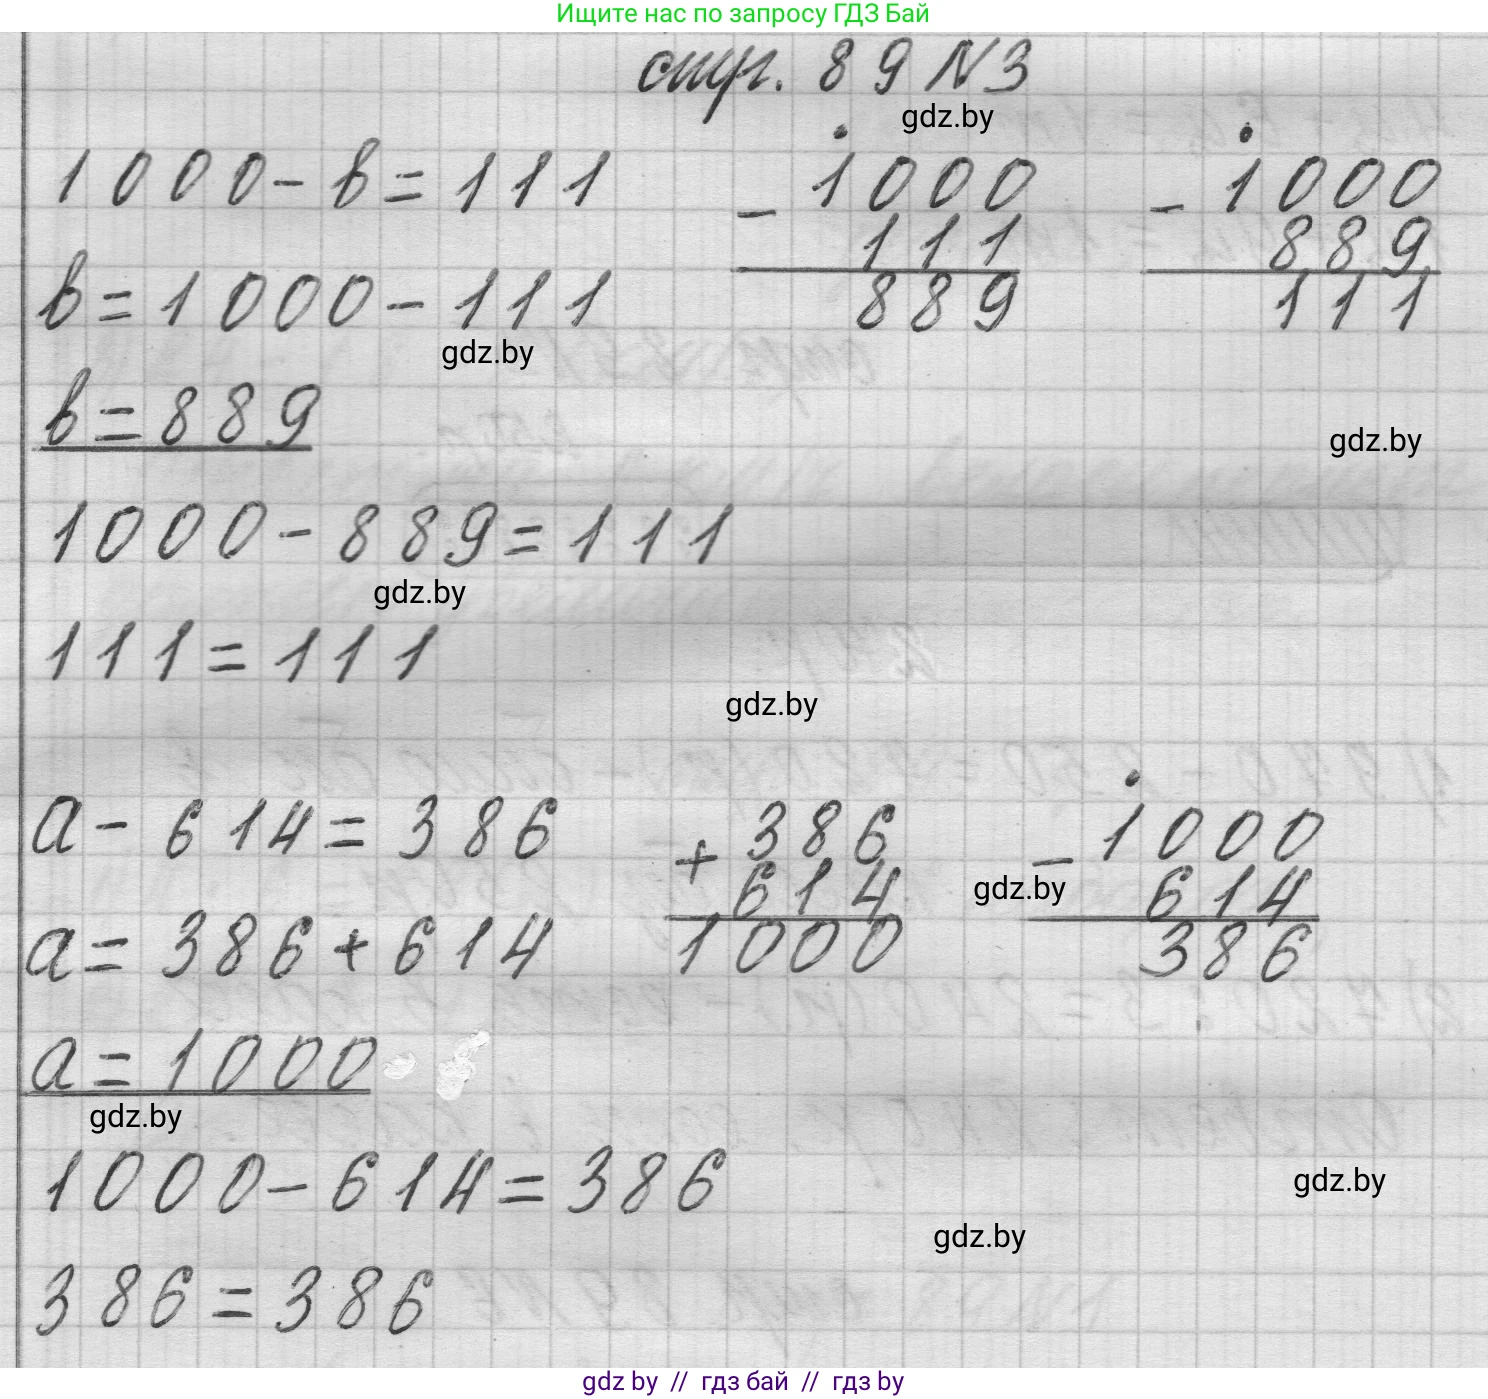 Ищите нас по запросу ГДЗ Бай
стр. 89 N3
gdz.by
1000-в=111
в=1000-111
gdz.by
в=889
1000-889=111
gdz.by
111=111
- 1000
111
889
- 1000
889
111
gdz.by
gdz.by
а-614=386
а=386+614
а=1000
gdz.by
1000-614=386
386=386
+ 386
614
1000
gdz.by
- 1000
614
386
gdz.by
gdz.by
gdz.by // гдз бай // гдз by